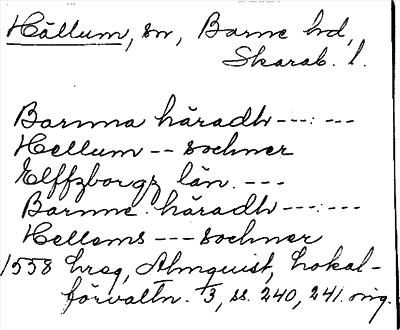 Hällum, sn, Barne hd,
Skarab. l.
Barnna häradh ---:---
Hellum -- sochner
Elffzborgz län. ---
Barnne häradh ---:---
Hellems --- sochner
1558 hreg, Almquist, Lokal-
förvaltn. 3, ss. 240, 241. org.